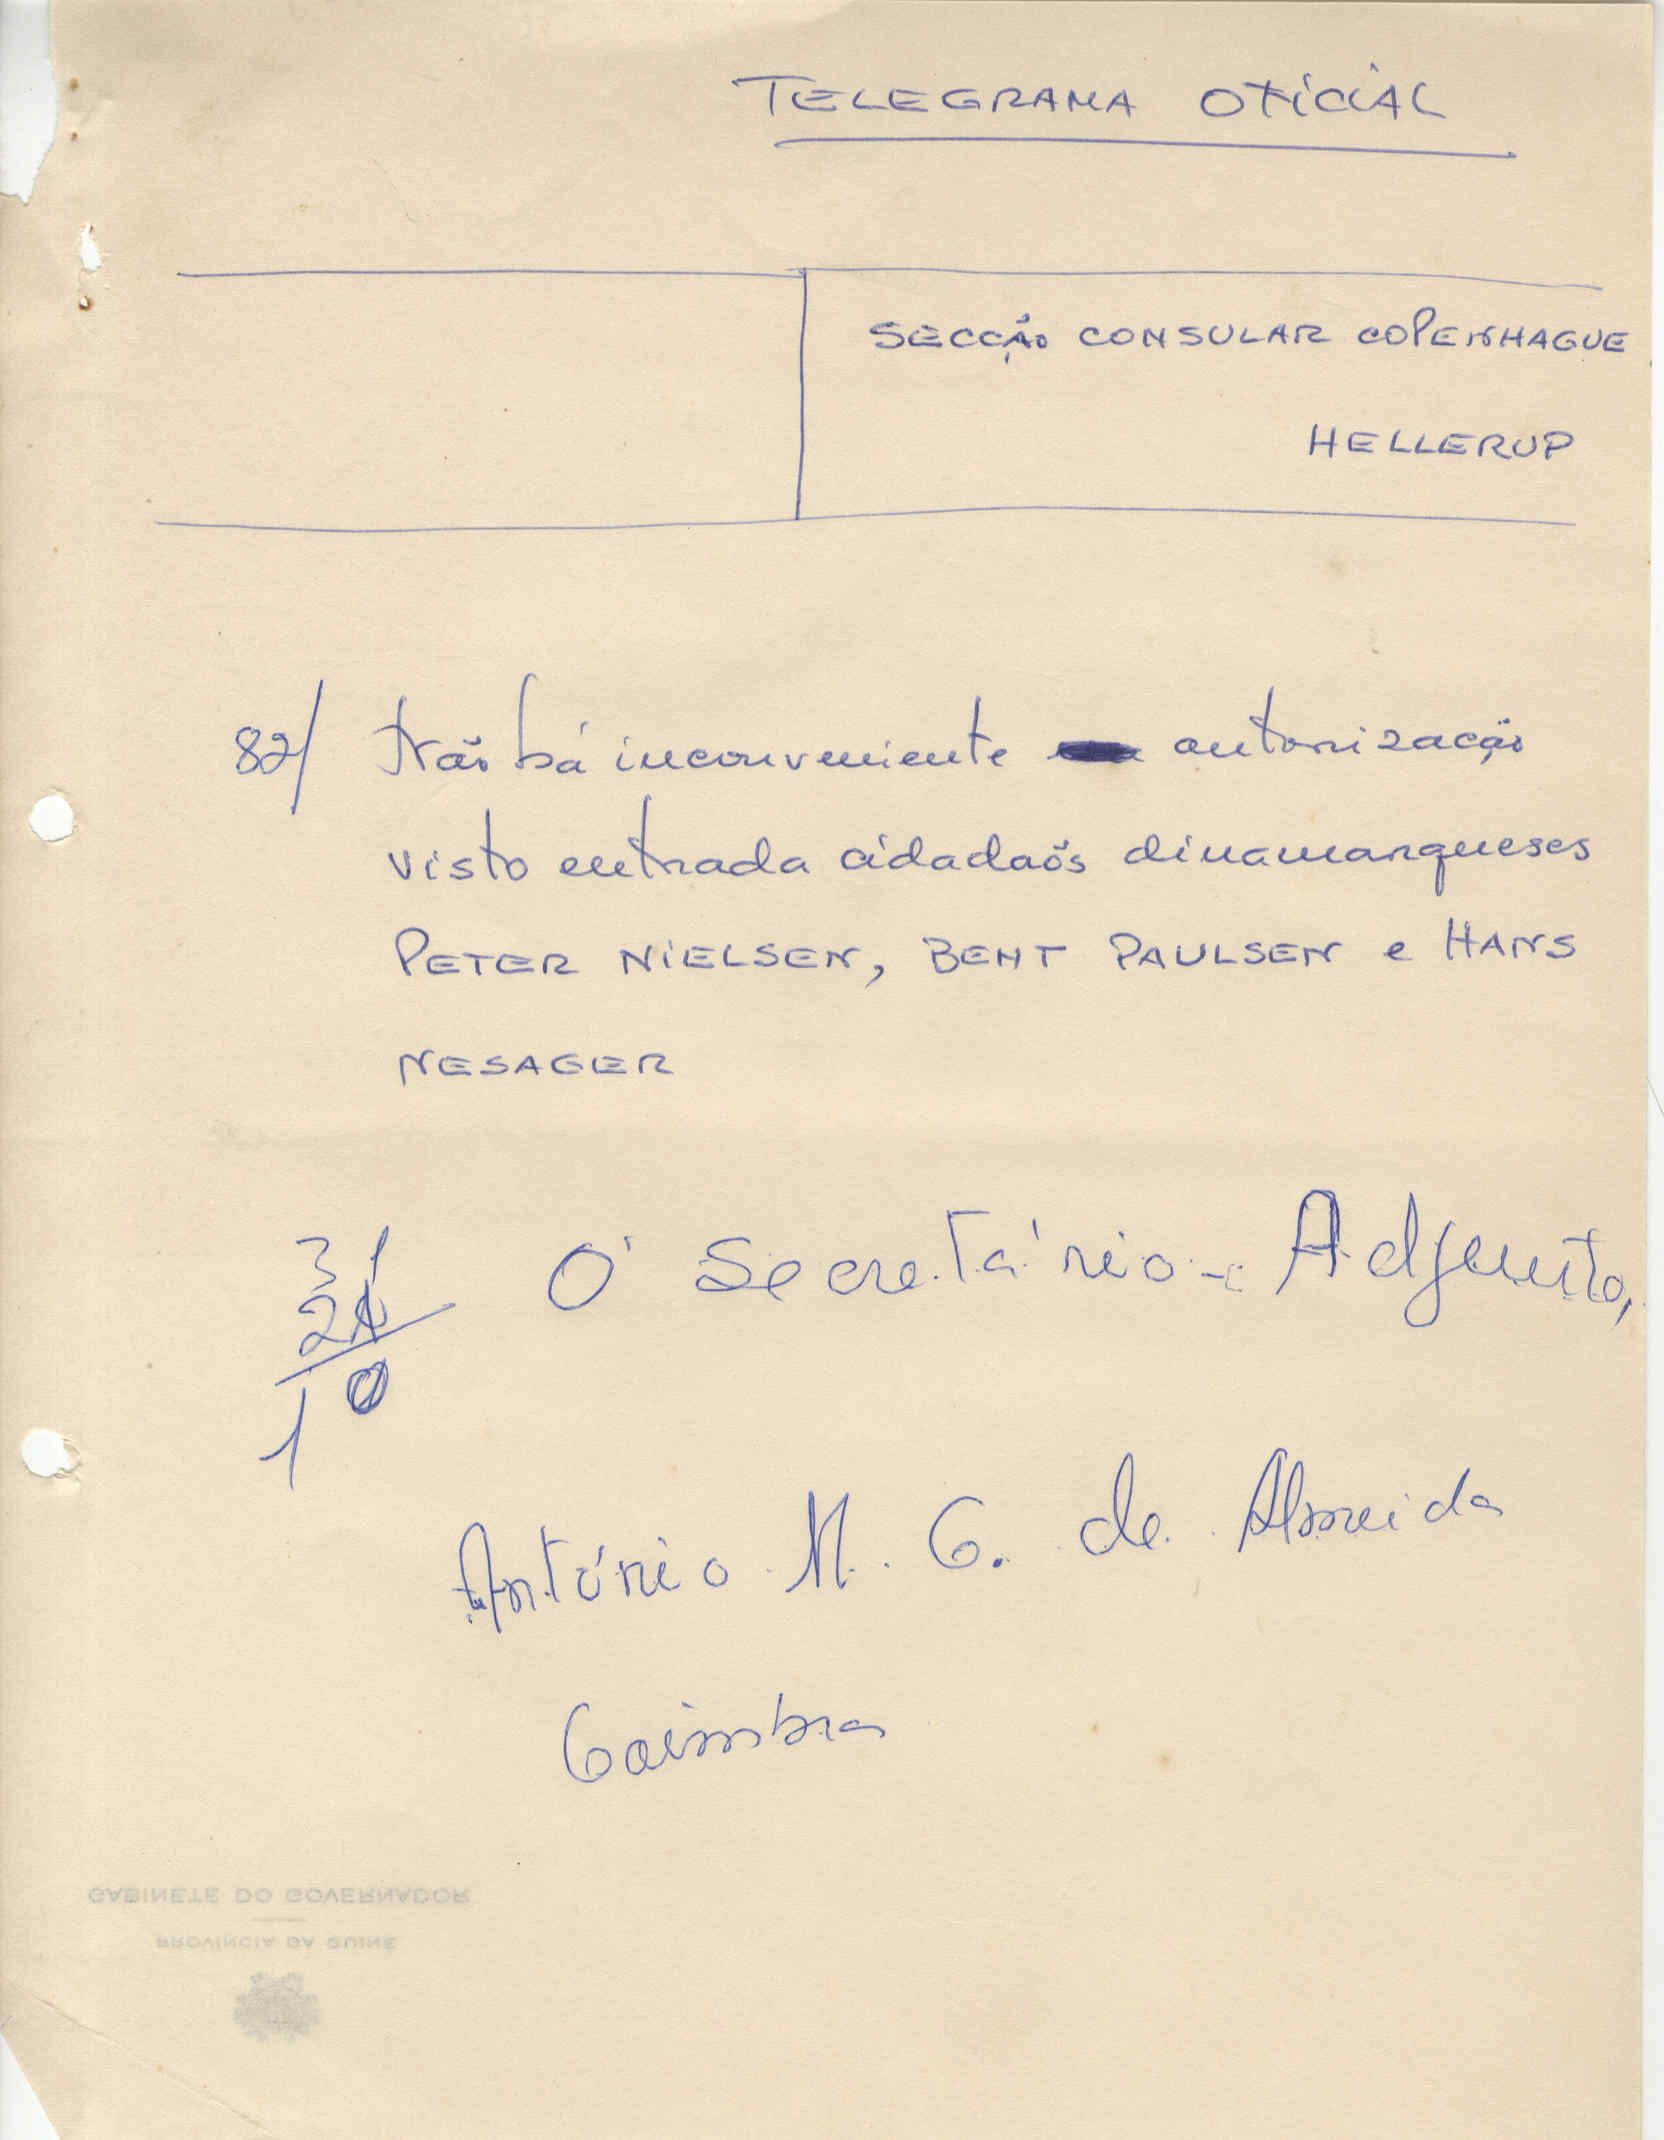 TELEGRAMA OFICIAL
SECÇÃO CONSULAR COPENHAGUE
HELLERUP
82/ Não há inconveniente autorização
visto entrada cidadaõs dinamarqueses
PETER NIELSEN, BENT PAULSEN e HANS
NESAGER
O Secretário-Adjunto,
António M. C. de Almeida
Coimbra
GABINETE DO GOVERNADOR
PROVINCIA DA GUINÉ